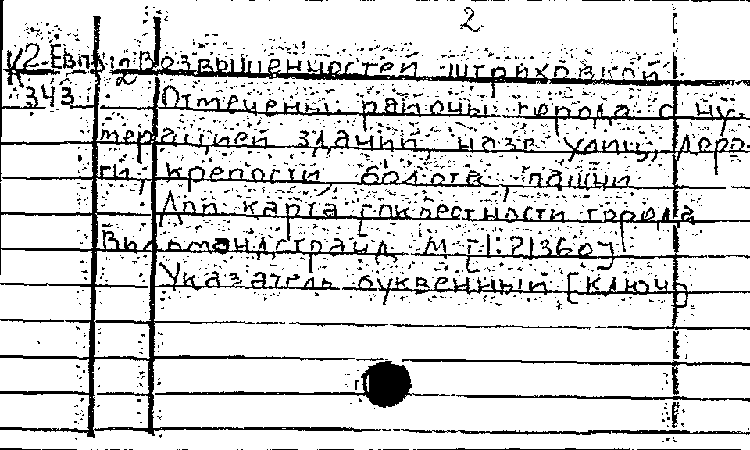 2
К2-Евп 2 Возвышенностей штриховкой
343 Отмечены районы города с ну-
мерацией зданий, назв улиц, доро-
ги, крепости, болота, пашни
Доп карта [окрестности города
Вильманстранд М [1:21360]
Указатель буквенный [ключ]